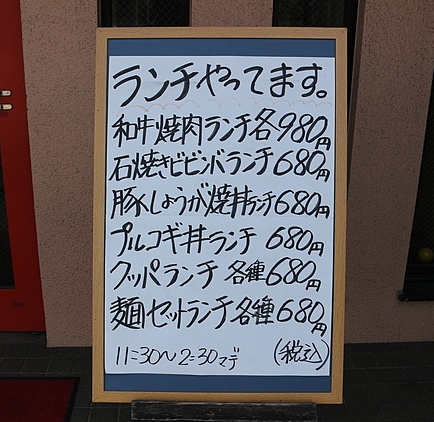 ランチやってます。
和牛焼肉ランチ各980円
石焼きビビンバランチ680円
豚しょうが焼丼ランチ680円
プルコギ丼ランチ 680円
クッパランチ 各種680円
麺セットランチ各種680円
11:30〜2:30マデ (税込)